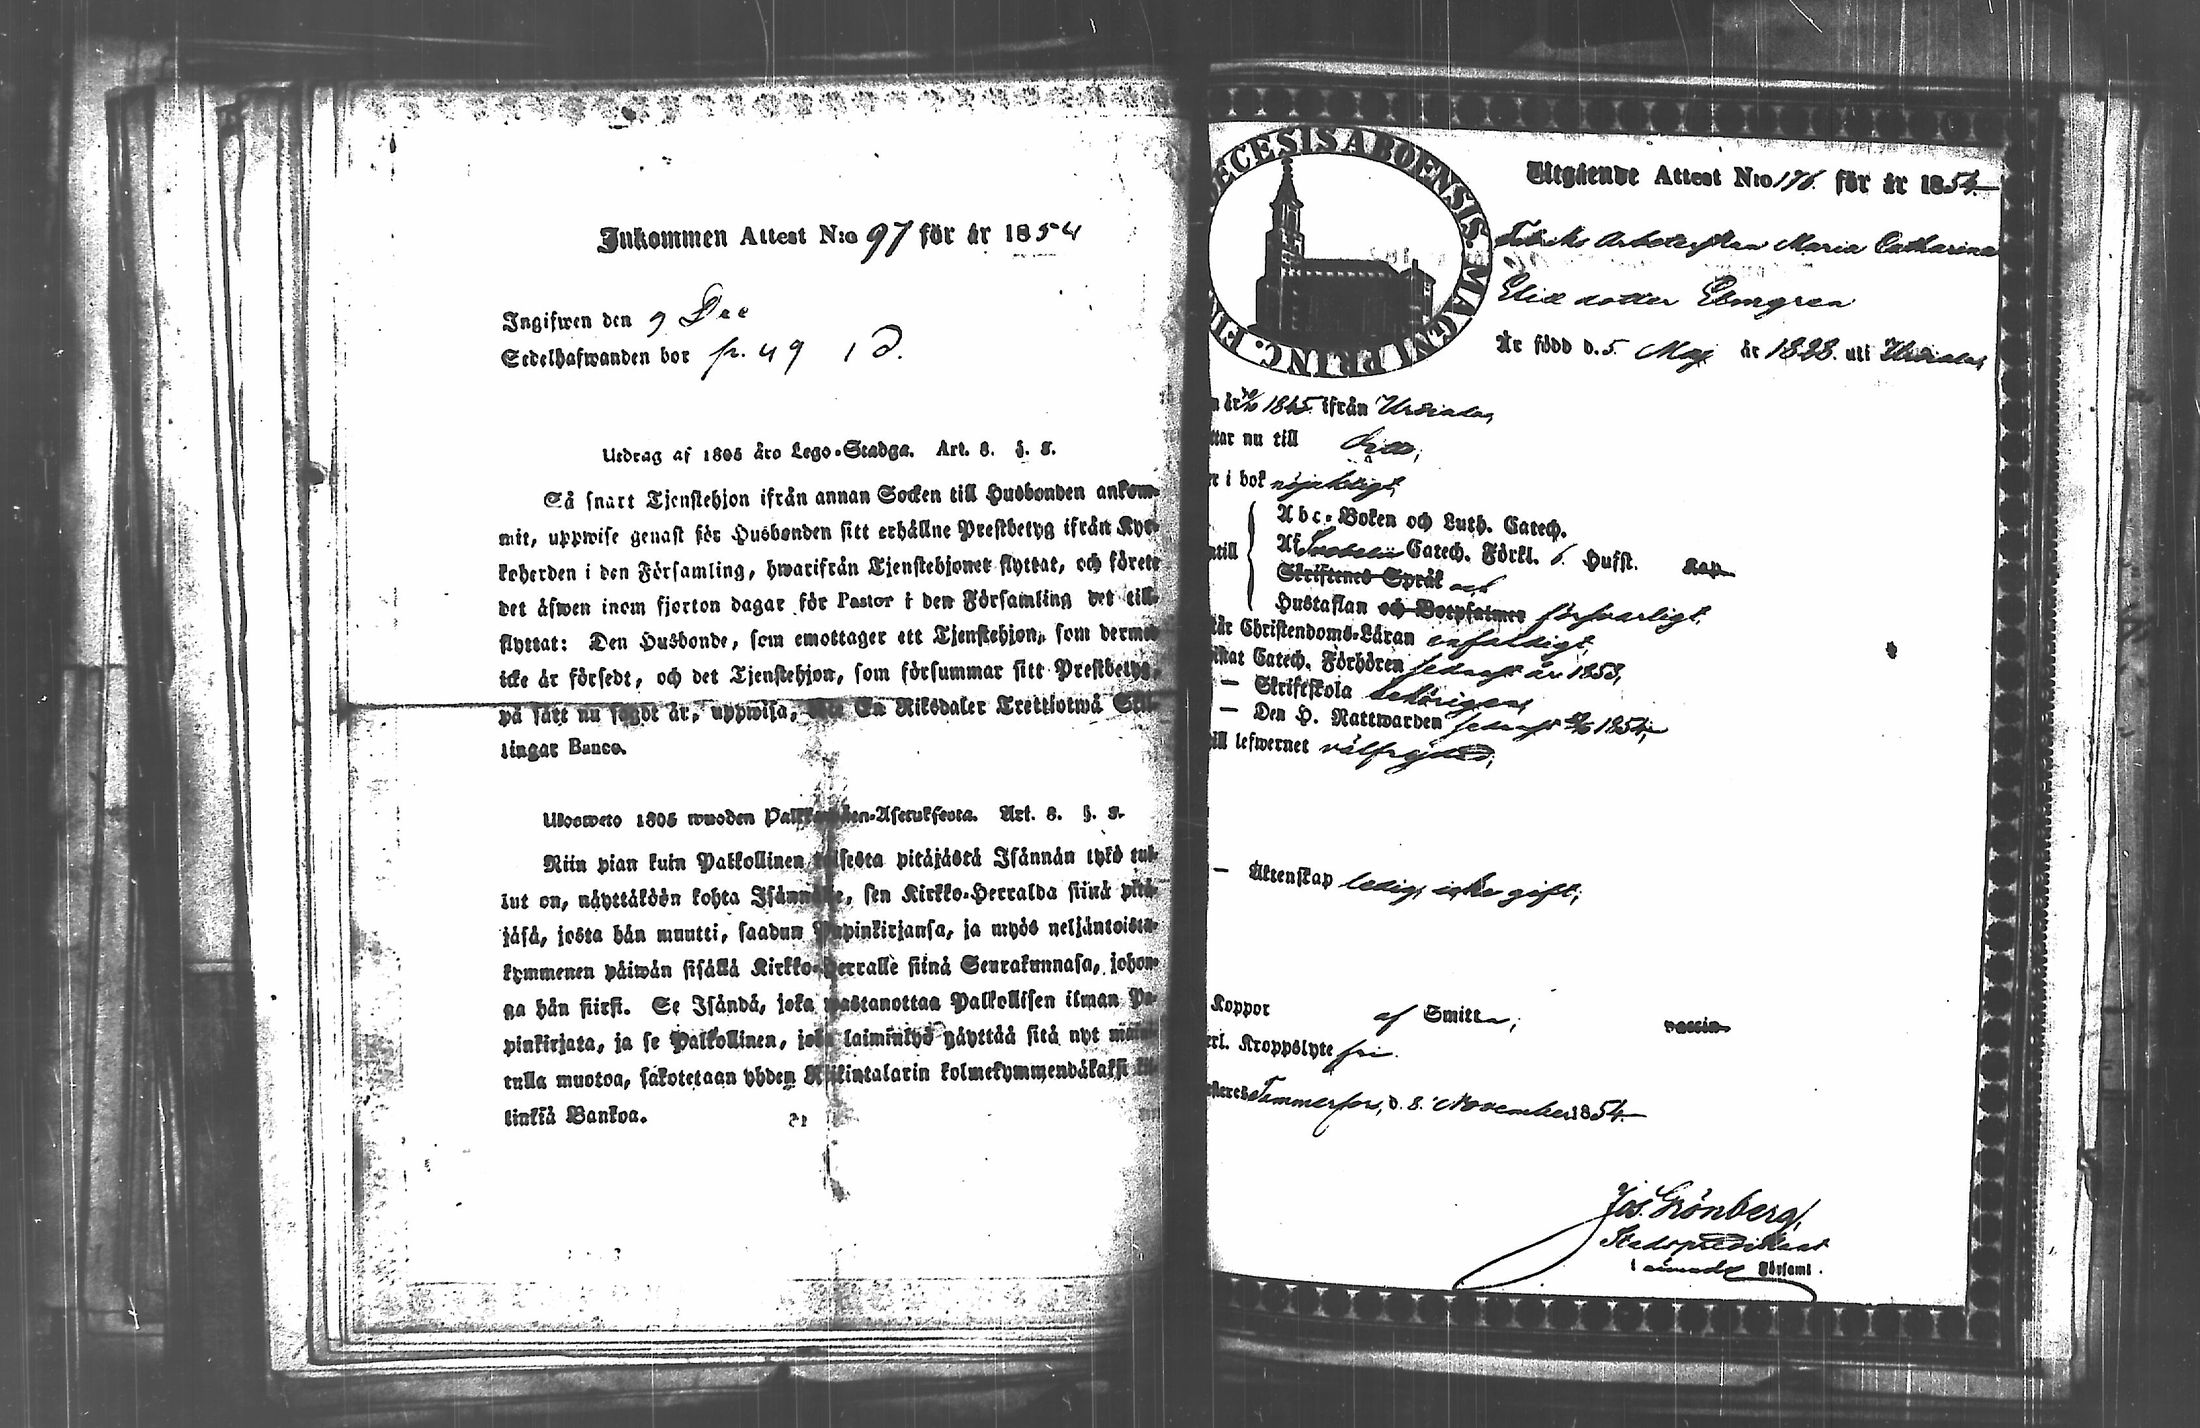 Inkommen Attest N:o 97 för år 1854
Ingifwen den 9 Dec
Sedelhafwanden bor fr. 49 1 d.
Utdrag af 1805 års Lego-Stadga. Art. 8. §. 8.
Så snart Tjenstehjon ifrån annan Socken till Husbonden ankom-
mit, uppwise genast för Husbonden sitt erhållne Prestbetyg ifrån Kyr-
koherden i den Församling, hwarifrån Tjenstehjonet flyttat, och förete
det äfwen inom fjorton dagar för Pastor i den Församling det till-
flyttat: Den Husbonde, som emottager ett Tjenstehjon, som dermed
icke är försedt, och det Tjenstehjon, som försummar sitt Prestbetyg,
på sätt nu sagdt är, uppwisa, En Riksdaler Trettiotwå Skil-
lingar Banco.
Ulosweto 1805 wuoden Palkkollisten-Asetuksesta. Art. 8. §. 8.
Niin pian kuin Palkollinen toisesta pitäjästä Isännän tykö tul-
lut on, näyttäköön kohta Isännälle, sen Kirkko-Herralda siinä pitä-
jäsä, josta hän muutti, saadun Papinkirjansa, ja myös neljäntoista-
kymmenen päiwän sisällä Kirkko-Herralle siinä Seurakunnasa, johon-
ga hän siirsi. Se Isändä, joka wastanottaa Palkollisen ilman Pa-
pinkirjata, ja se Palkollinen, joka laiminlyö näyttää sitä nyt maini-
tulla muotoa, sakotetaan yhden Riikintalarin kolmekymmendäkaksi kil-
linkiä Bankoa.
ECESIS ABOENSIS. MAGNI PRINC. FI
Utgående Attest N:o 176. för år 1854
Fabriks Arbeterskan Maria Catharina
Elias dotter Elmgren
Är född d. 5. Maj år 1828. uti Urdiala,
1845. ifrån Urdiala,
ttar nu till Ditto,
r i bok nöjaktigt,
ntill
Abc-Boken och Luth. Catech.
Af Svebelii Catech. Förkl. 6. Hufst. Kap
Skriftenes Språk och
Hustaflan och Botpsalmer försvarligt,
tår Christendoms-Läran enfaldigt,
istat Catech. Förhören sednast år 1853,
— Skriftskola behörigen,
— Den H. Nattwarden sednast 1854,
ill lefwernet välfrejdad,
— Äktenskap ledig, icke gift,
Koppor af Smitta, vaccin
erl. Kroppslyte fri.
Tammerfors, d. 8. November 1854
Jos. Grönberg,
Stadspredikant
i nämnde Församl.